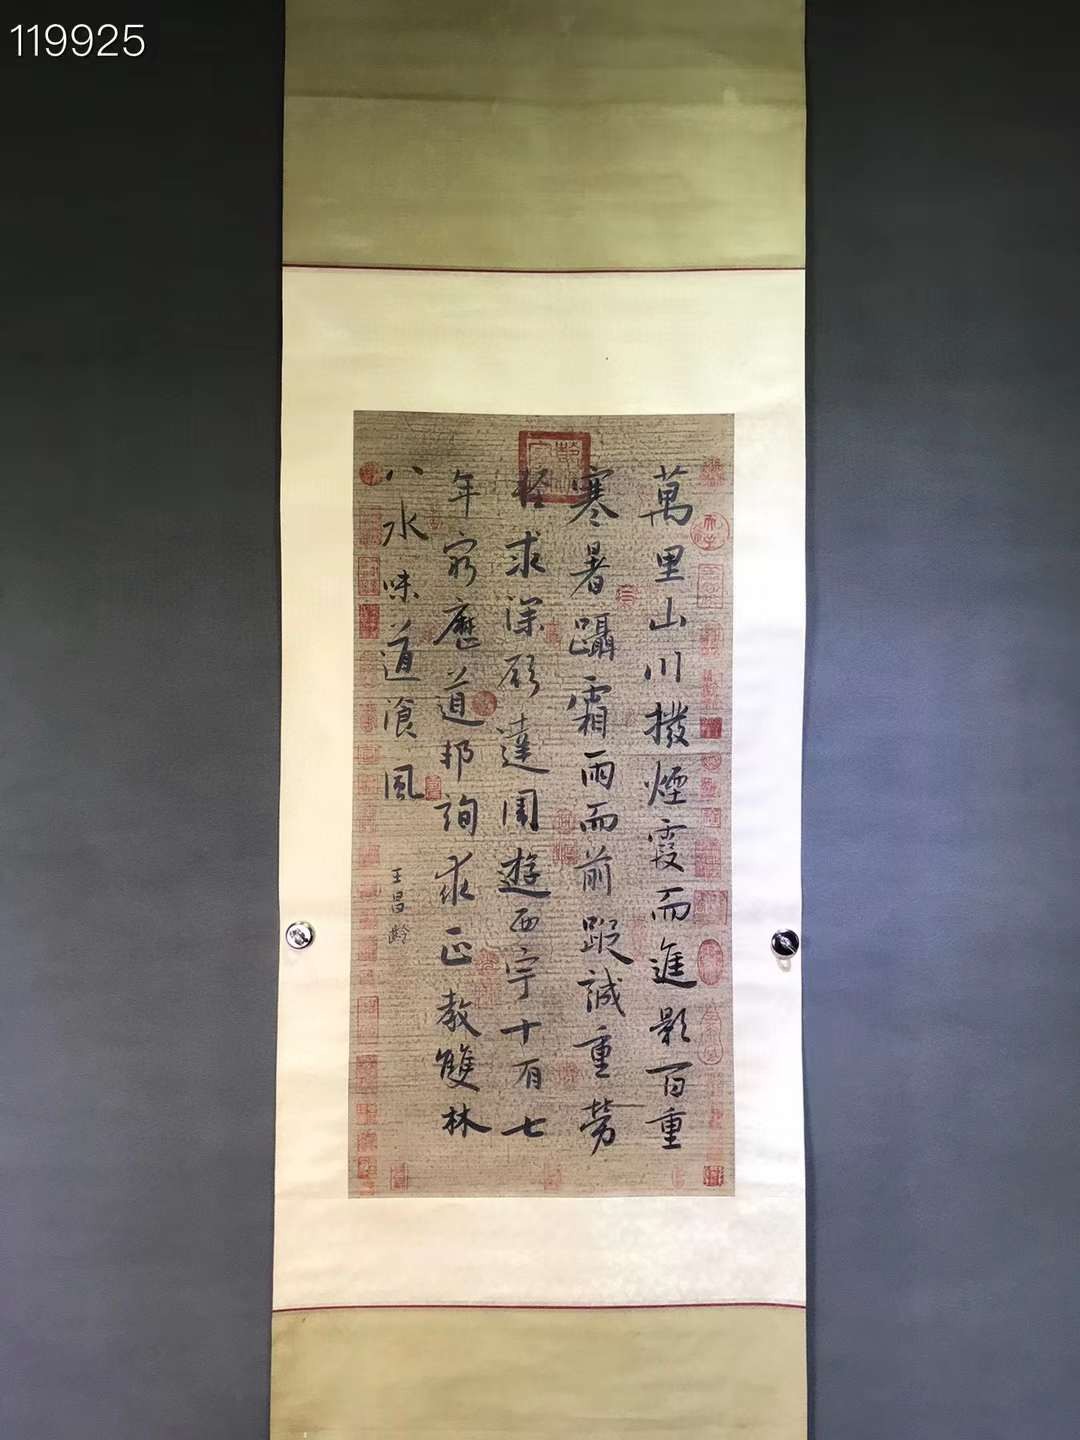 119925
萬里山川撥煙霞而進影百重
寒暑躡霜雨而前蹤誠重勞
輕求深願達周遊西宇十有七
年窮歷道邦詢求正教雙林
八水味道飡風
王昌齡